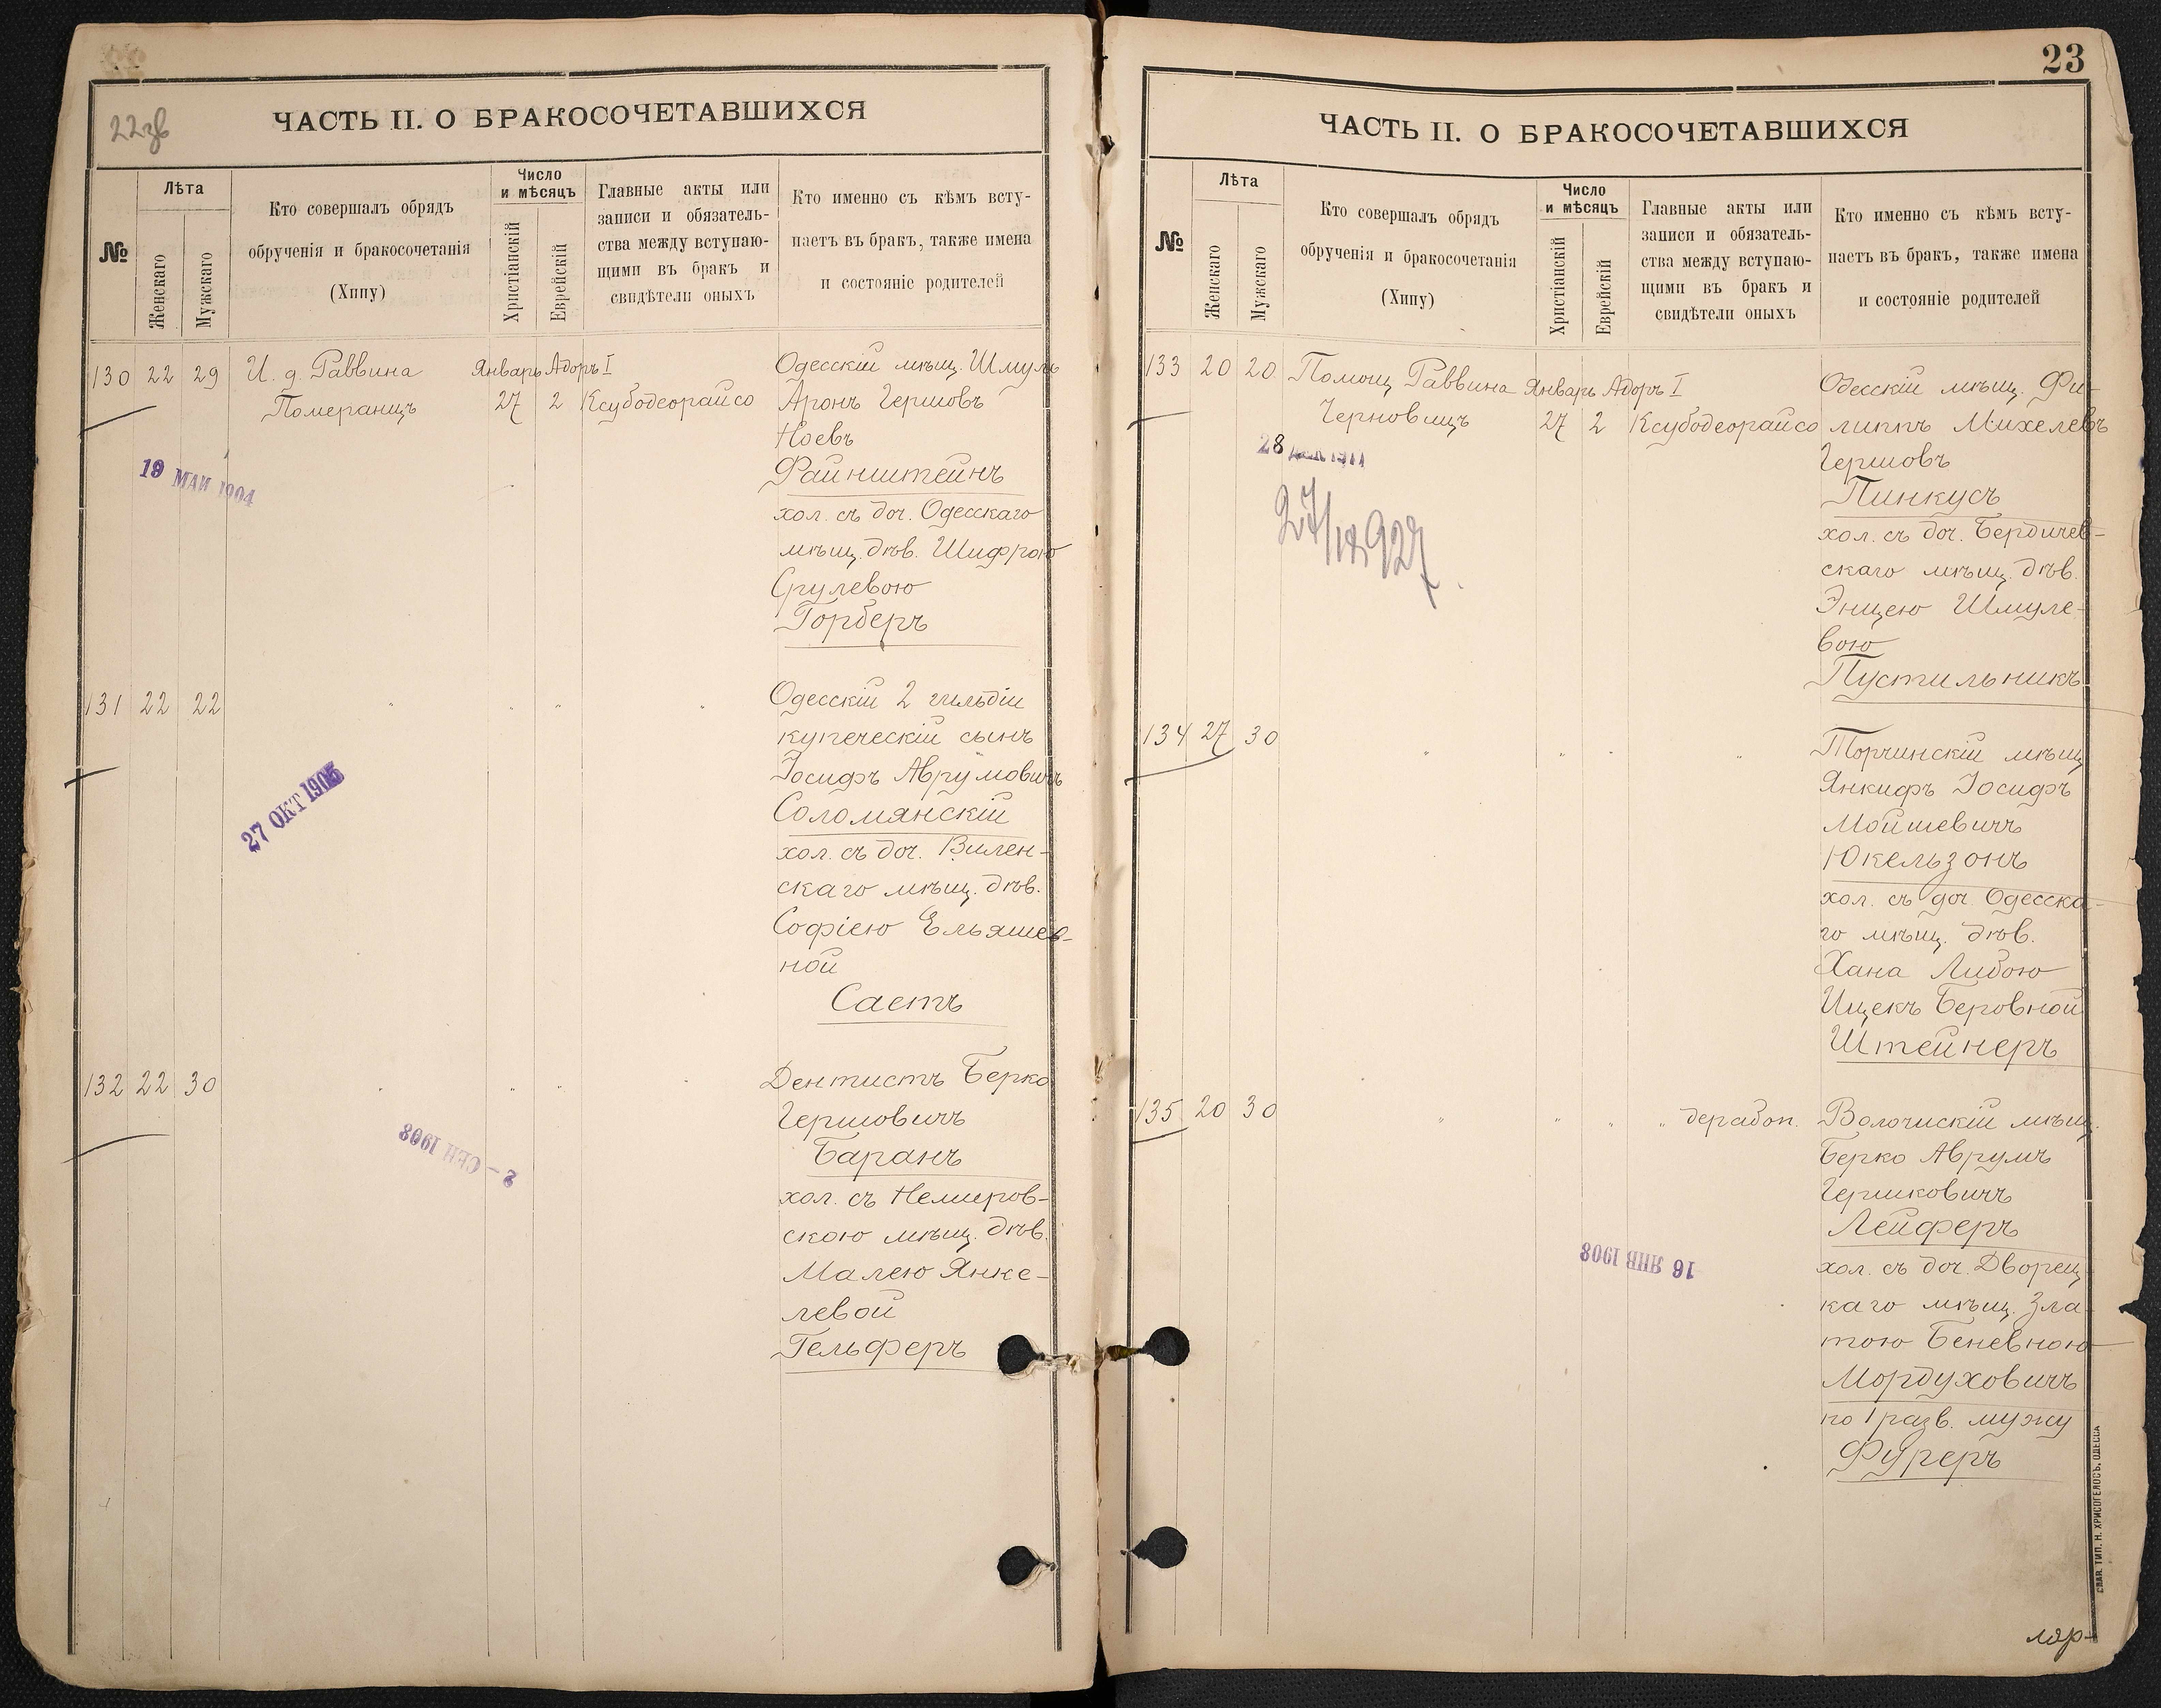 22зв
ЧАСТЬ II. О БРАКОСОЧЕТАВШИХСЯ
№
Лѣта
Женскаго
Мужскаго
Кто совершалъ обрядъ
обрученія и бракосочетанія
(Хипу)
Число
и мѣсяцъ
Христіанскій
Еврейскій
Главные акты или
записи и обязатель-
ства между вступаю-
щими въ бракъ и
свидѣтели оныхъ
Кто именно съ кѣмъ всту-
паетъ въ бракъ, также имена
и состояніе родителей
130 22 29 И. д. Раввина Январь Адоръ I Одесскій мѣщ. Шмуль
Померанцъ 27 2 Ксубодеорайсо Аронъ Гершовъ
Ноевъ
19 МАИ 1904
Файнштейнъ
хол. съ доч. Одесскаго
мѣщ. дѣв. Шифрою
Срулевою
Горберъ
131 22 22 " " " " Одесскій 2 гильдіи
купеческій сынъ
Іосифъ Аврумовичъ
27 ОКТ 1905
Соломянскій
хол. съ доч. Вилен-
скаго мѣщ. дѣв.
Софіею Ельяшев-
ной
Саетъ
132 22 30 " " " " Дентистъ Берко
Гершовичъ
2 - СЕН 1908
Баранъ
хол. съ Немиров-
скою мѣщ. дѣв.
Малею Янке-
левой
Гельферъ
23
ЧАСТЬ II. О БРАКОСОЧЕТАВШИХСЯ
№
Лѣта
Женскаго
Мужскаго
Кто совершалъ обрядъ
обрученія и бракосочетанія
(Хипу)
Число
и мѣсяцъ
Христіанскій
Еврейскій
Главные акты или
записи и обязатель-
ства между вступаю-
щими въ бракъ и
свидѣтели оныхъ
Кто именно съ кѣмъ всту-
паетъ въ бракъ, также имена
и состояніе родителей
133 20 20 Помощ. Раввина Январь Адоръ I Одесскій мѣщ. Фи-
Черновицъ 27 2 Ксубодеорайсо липпъ Михелевъ
28 1911
Гершовъ
Пинкусъ
хол. съ доч. Бердичев-
скаго мѣщ. дѣв.
Энцею Шмуле-
вою
Пустильникъ
134 27 30 " " " " Торчинскій мѣщ.
Янкифъ Іосифъ
Мойшевичъ
Юкельзонъ
хол. съ доч. Одесска-
го мѣщ. дѣв.
Хана Либою
Ицекъ Беровной
Штейнеръ
135 20 30 " " " " дерабон. Волочискій мѣщ.
Берко Аврумъ
Гершковичъ
Лейферъ
16 ЯНВ 1908
хол. съ доч. Дворец-
каго мѣщ. Зла-
тою Беневною
Мордуховичъ
по 1 разв. мужу
Фуреръ
СЛАВ. ТИП. Н. ХРИСОГЕЛОСЪ, ОДЕССА